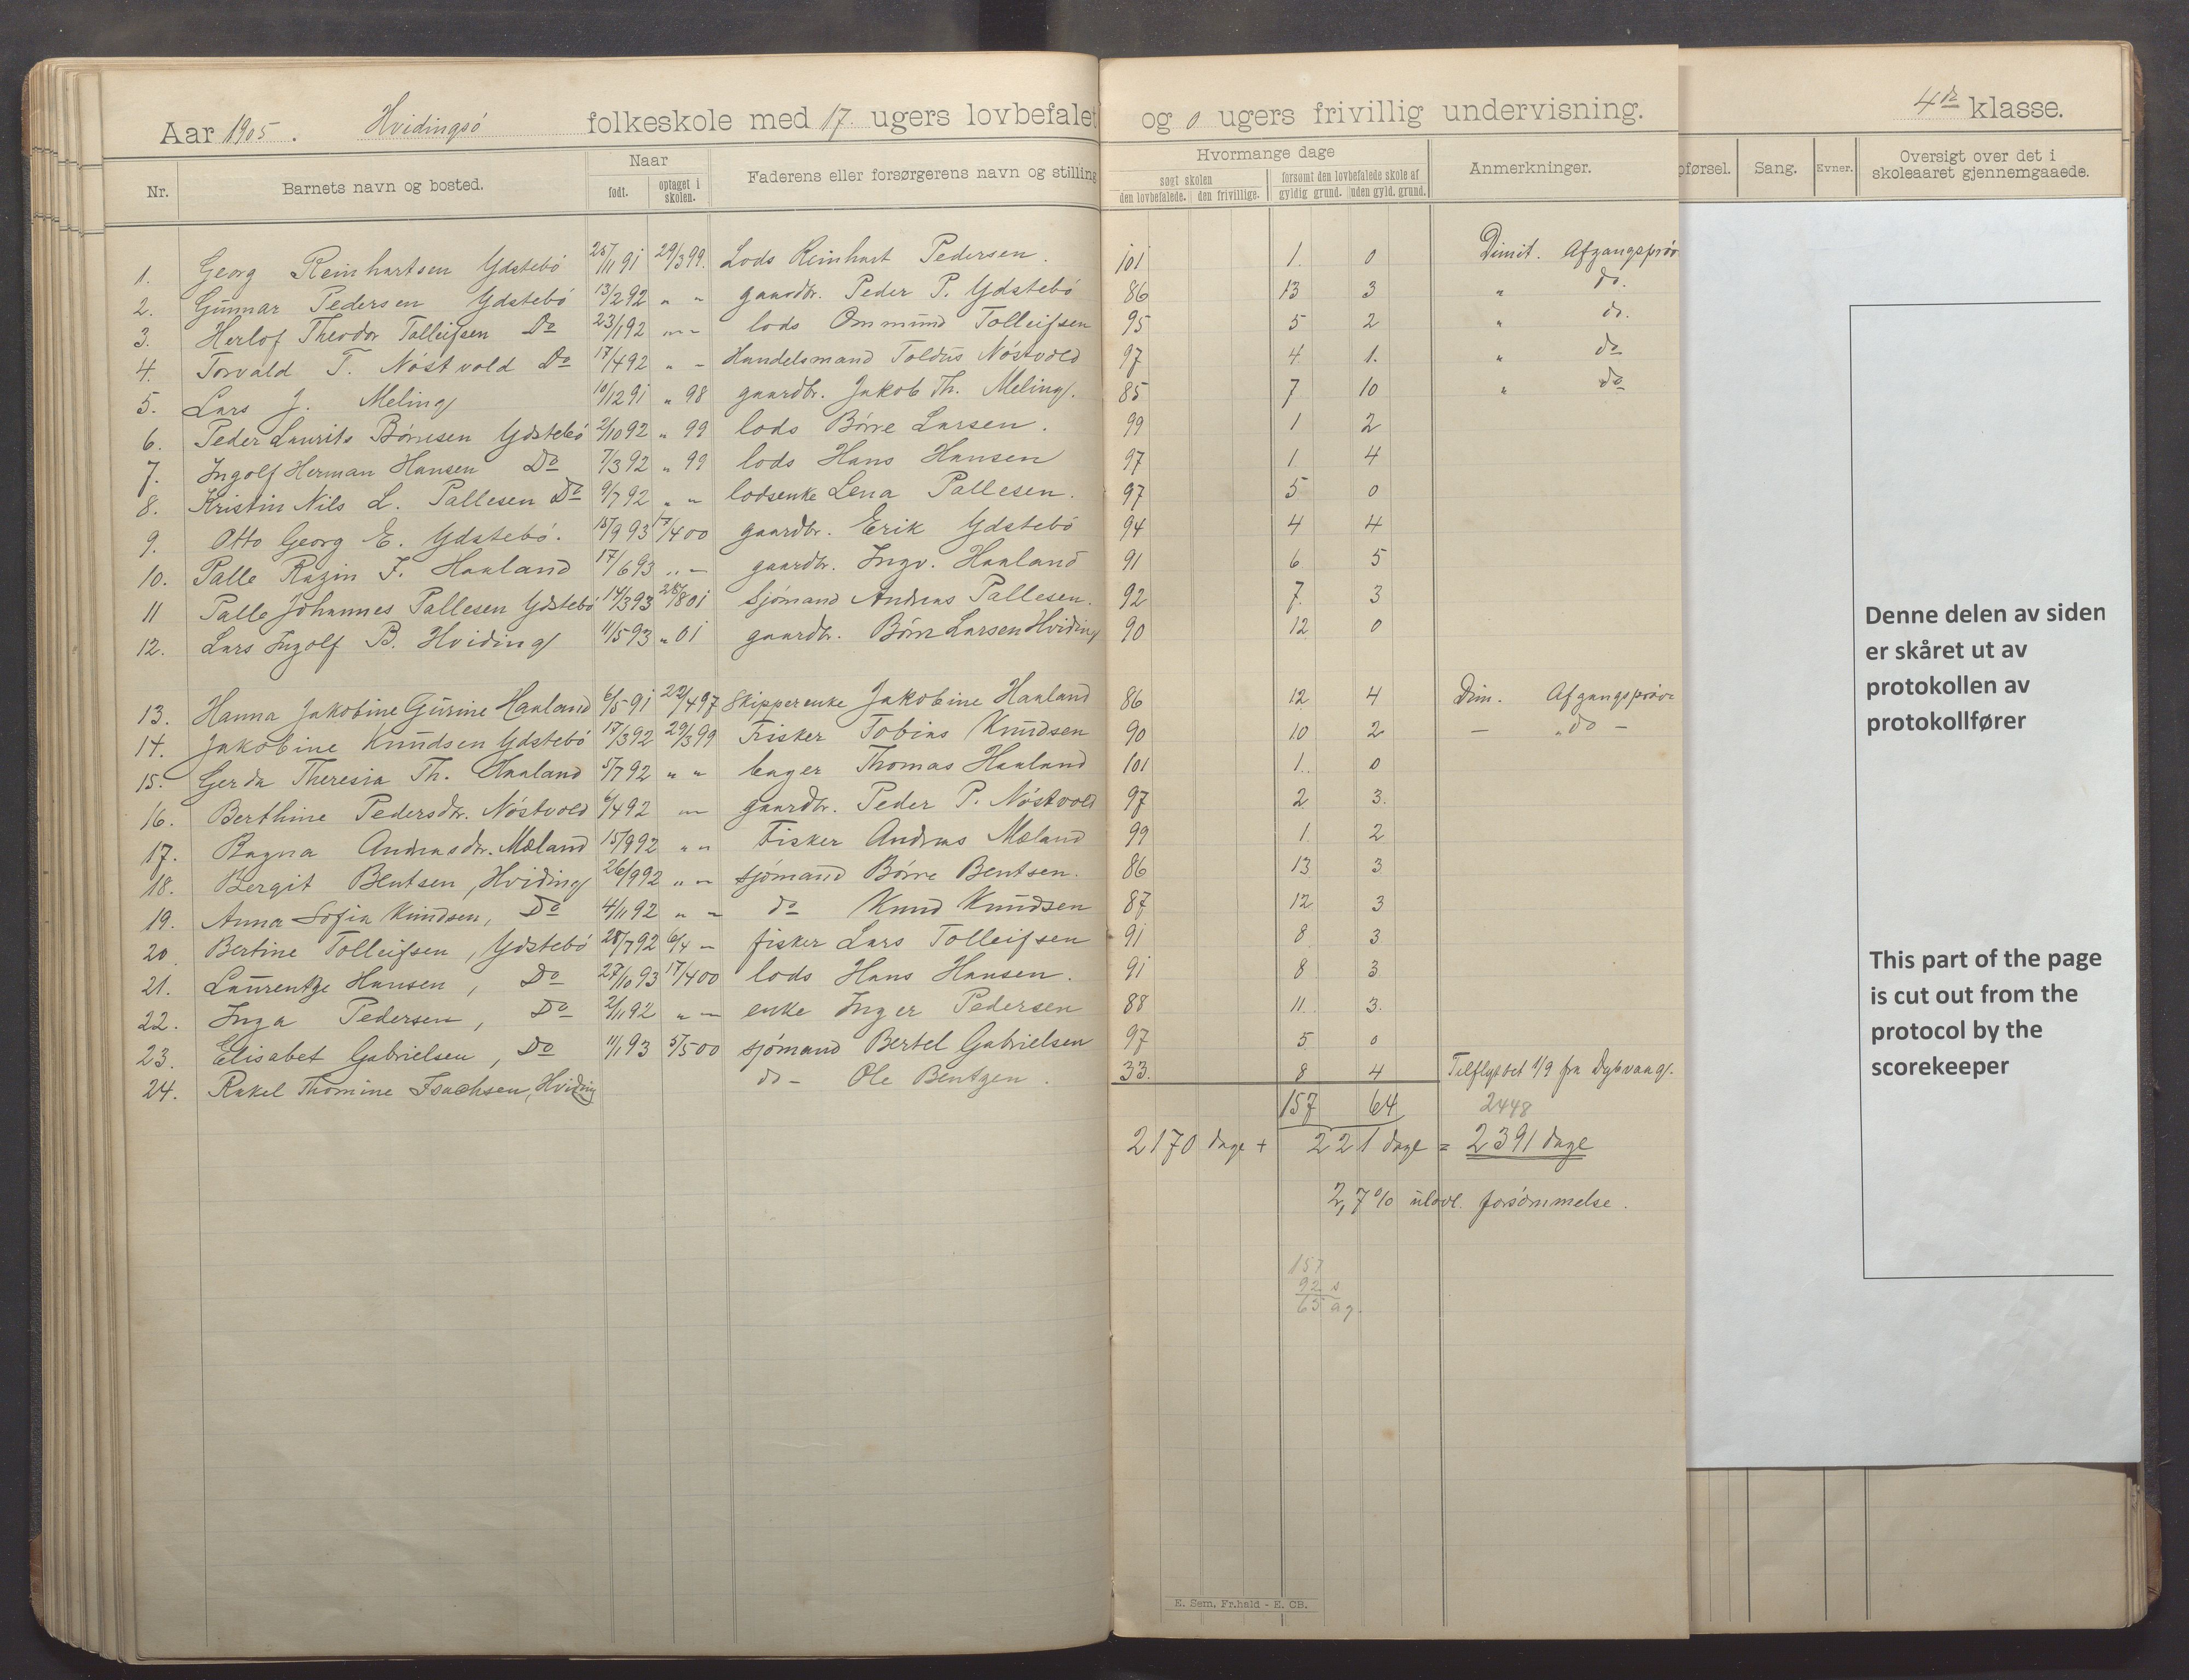 Aar 1905. Hvidingsö folkeskole med 17 ugers lovbefalet og 0 ugers frivillig undervisning. 4de klasse.
Nr. Barnets navn og bosted. Naar født. optaget i skolen. Faderens eller forsørgerens navn og stilling Hvormange dage søgt skolen den lovbefalede. den frivillige. forsømt den lovbefalede skole af gyldig grund. uden gyld. grund. Anmerkninger. Sang. Evner. Oversigt over det i skoleaaret gjennemgaaede.
1. Georg Reinhartsen Ydstebö 25/11 91 29/3 99. Lods Reinhart Pedersen. 101 1. 0 Dimit. Afgangsprøv
2. Gunnar Pedersen Ydstebö 13/2 92 " " gaardbr. Peder P. Ydstebö 86 13 3 " do.
3. Herlof Theodor Tolleifsen Do 23/1 92 " " lods Ommund Tolleifsen 95 5 2 " do.
4. Torvald T. Nöstvold Do 17/4 92 " - Handelsmand Toldus Nöstvold 97 4 1. " do
5. Lars J. Meling 10/12 91 " 98 gaardbr. Jakob Th. Meling. 85 7 10 " do
6. Peder Laurits Börresen Ydstebö 2/10 92 " 99 lods Börre Larsen. 99 1 2
7. Ingolf Herman Hansen Do 7/3 92 " 99 lods Hans Hansen 97 1 4
8. Kristin Nils L. Pallesen Do 9/7 92 " " lodsenke Lena Pallesen. 97 5 0
9. Otto Georg E. Ydstebö. 15/9 93 17/4 00 gaardbr. Erik Ydstebö 94 4 4
10. Palle Razin I. Haaland 17/6 93 " - gaardbr. Ingv. Haaland 91 6 5
11 Palle Johannes Pallesen Ydstebö 14/3 93 28/8 01 Sjömand Andreas Pallesen. 92 7. 3
12. Lars Ingolf B. Hviding 11/5 93 " 01 gaardbr. Börre Larsen Hviding 90 12 0
13. Hanna Jakobine Gurine Haaland 6/5 91 22/4 97 Skipperenke Jakobine Haaland 86 12 4 Dim. Afgangsprøve
14. Jakobine Knudsen Ydstebö 17/3 92 29/3 99 Fisker Tobias Knudsen 90 10 2 - " do -
15. Gerda Theresia Th. Haaland 5/7 92 " " bager Thomas Haaland 101 1. 0
16. Berthine Pedersdtr. Nöstvold 6/4 92 " gaardbr. Peder P. Nöstvold 97 2 3.
17. Ragna Andreasdtr. Mæland 15/9 92 " " Fisker Andreas Mæland 99 1. 2
18. Bergit Bentsen, Hviding 26/9 92 " - sjömand Börre Bentsen. 86 13 3
19. Anna Sofia Knudsen, Do 4/1 92 " - do Knud Knudsen 87 12 3
20. Bertine Tolleifsen, Ydstebö 28/7 92 6/4 - fisker Lars Tolleifsen 91 8 3
21. Laurentze Hansen, Do 27/10 93 17/4 00 lods Hans Hansen. 91 8 3
22. Inga Pedersen, Do 2/1 92 " - enke Inger Pedersen 88 11. 3.
23. Elisabet Gabrielsen, Do 11/1 93 5/5 00 sjömand Bertel Gabrielsen 97 5 0
24. Rakel Thomine Isachsen, Hviding do - Ole Bentzen. 33. 8 4 Tilflyttet 1/9 fra Dybvaag.
157 64 2448
2170 dage + 221 dage = 2391 dage
2,7% ulovl. forsömmelse.
157
92 s
65 ag.
E. Sem, Fr.hald - E. CB.
Denne delen av siden
er skåret ut av
protokollen av
protokollfører
This part of the page
is cut out from the
protocol by the
scorekeeper